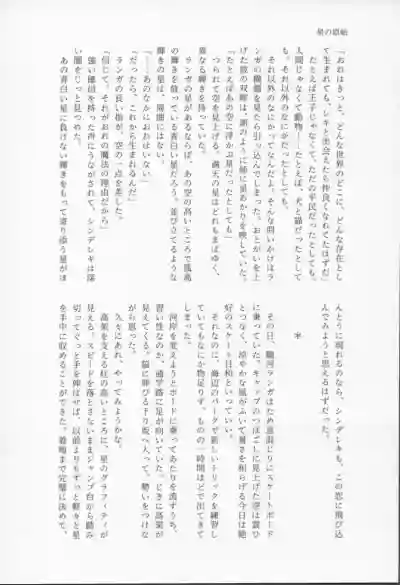 星の原始
「おれはきっと、どんな世界のどこに、どんな存在とし
て生まれても、レキと出会えたら仲良くなれてたはずだ」
たとえば王子じゃなくて、ただの平民だったとしても。
人間じゃなくて動物――たとえば、犬と猫だったとして
も。それ以外のなにかだったとしても。
それ以外のなにかってなんだよ。そんな問いかけはラ
ンガの横顔を見たら引っ込んでしまった。おとがいを上
げた彼の双眸は、湖のように姉に星あかりを映していた。
つられて空を見上げる。満天の星はどれもまばゆく、
異なる輝きを持っていた。
「たとえばあの空に浮かぶ星だったとしても」
ランガの星があるならば、あの空の高いところで孤高
の輝きを放っている青白い星だろう。並び立てるような
輝きの星は、周囲にはない。
「――あのなかにおれはいない」
「だったら、これから生まれるんだ」
ランガの長い指が、空の一点を差した。
「信じて。それがおれの魔法の理由だから」
強い確信を持った声にうながされて、シンデレキは深
い闇をじっと見つめた。
あの青白い星に負けない輝きをもって寄り添う星がほ
んとうに現れるのなら、シンデレキも、この恋に飛び込
んでみようと思えるはずだった。
＊
その日、馳河ランガはため息混じりにスケートボード
に乗っていた。キャップのつばごしに見上げた空は雲ひ
とつなく、涼やかな風がふいて暑さを和らげる今日は絶
好のスケート日和といっていい。
それなのに、海辺のパークで新しいトリックを練習し
ていてもなにか物足りず、ものの一時間ほどで出てきて
しまった。
河岸を変えようとボードに乗ってあたりを流すうち、
習い性なのか、通学路に足が向いていた。じきに高架が
見えてくる。脇に伸びる下り坂へ入って、勢いをつけな
がら思った。
久々にあれ、やってみようかな。
高架を支える柱の高いところに、星のグラフィティが
見える。スピードを落とさないままジャンプ台から踏み
切ってぐっと手を伸ばせば、以前よりもずっと軽々と星
を手中に収めることができた。着地まで完璧に決めて、